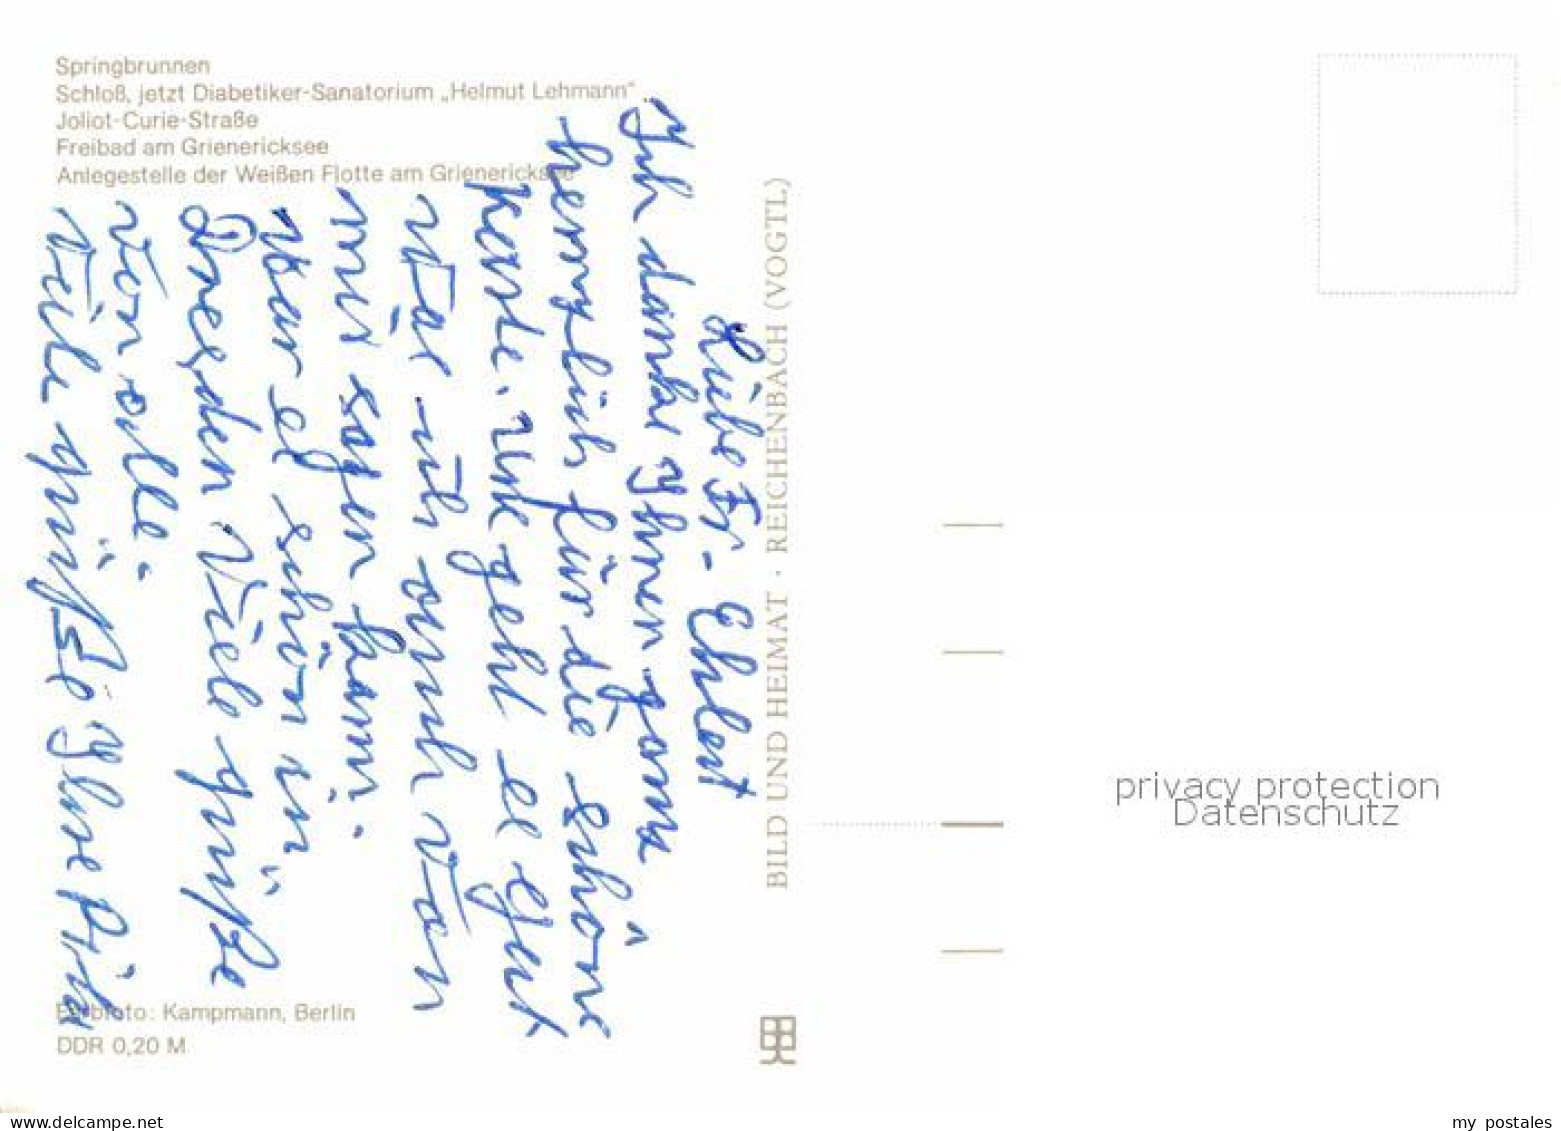 Springbrunnen
Schloß, jetzt Diabetiker-Sanatorium „Helmut Lehmann"
Joliot-Curie-Straße
Freibad am Grienericksee
Anlegestelle der Weißen Flotte am Grienericksee
Liebe Fr. Ehlert
Ich danke Ihnen ganz
herzlich für die schöne
Karte. geht es gut
was ich auch von
mir sagen kann.
War es schön in
Dresden Viele grüße
von alle.
Viele grüße Ihre
Farbfoto: Kampmann, Berlin
DDR 0,20 M
BILD UND HEIMAT · REICHENBACH (VOGTL)
privacy protection
Datenschutz
www.delcampe.net
my_postales